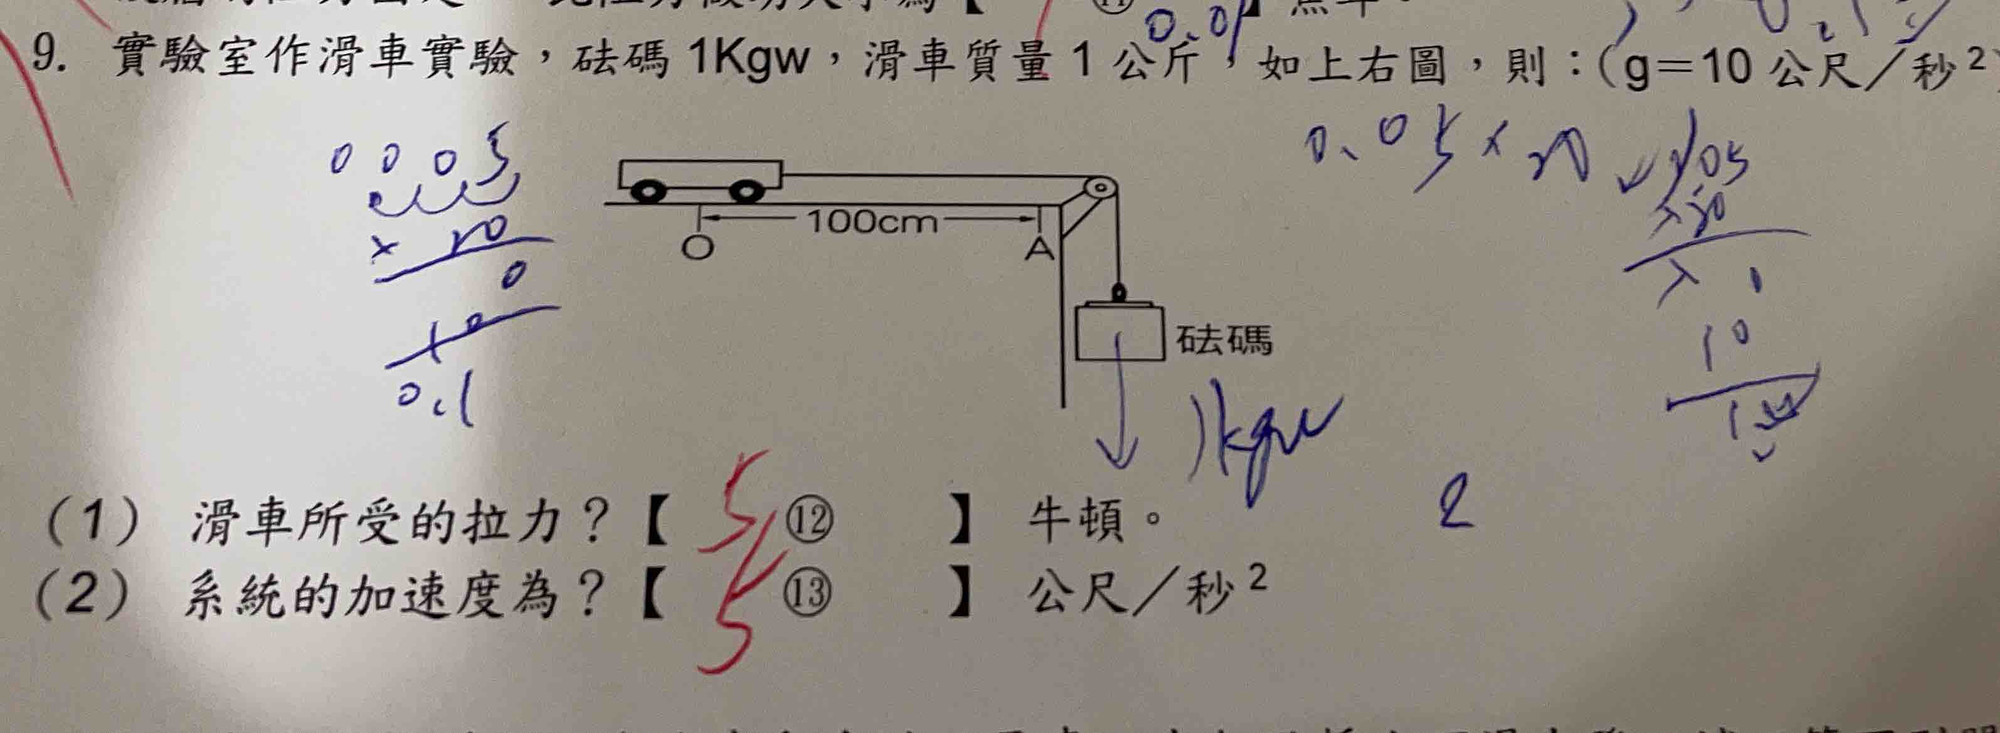 0.01
9. 實驗室作滑車實驗,砝碼 1Kgw,滑車質量 1 公斤,如上右圖,則:(g=10 公尺/秒²
0.05×20
0005
×20
0
10
0.1
100cm
O
A
砝碼
1kgw
105
×20
10
2
(1) 滑車所受的拉力?【 5 ⑫ 】 牛頓。
(2) 系統的加速度為?【 5 ⑬ 】 公尺/秒²